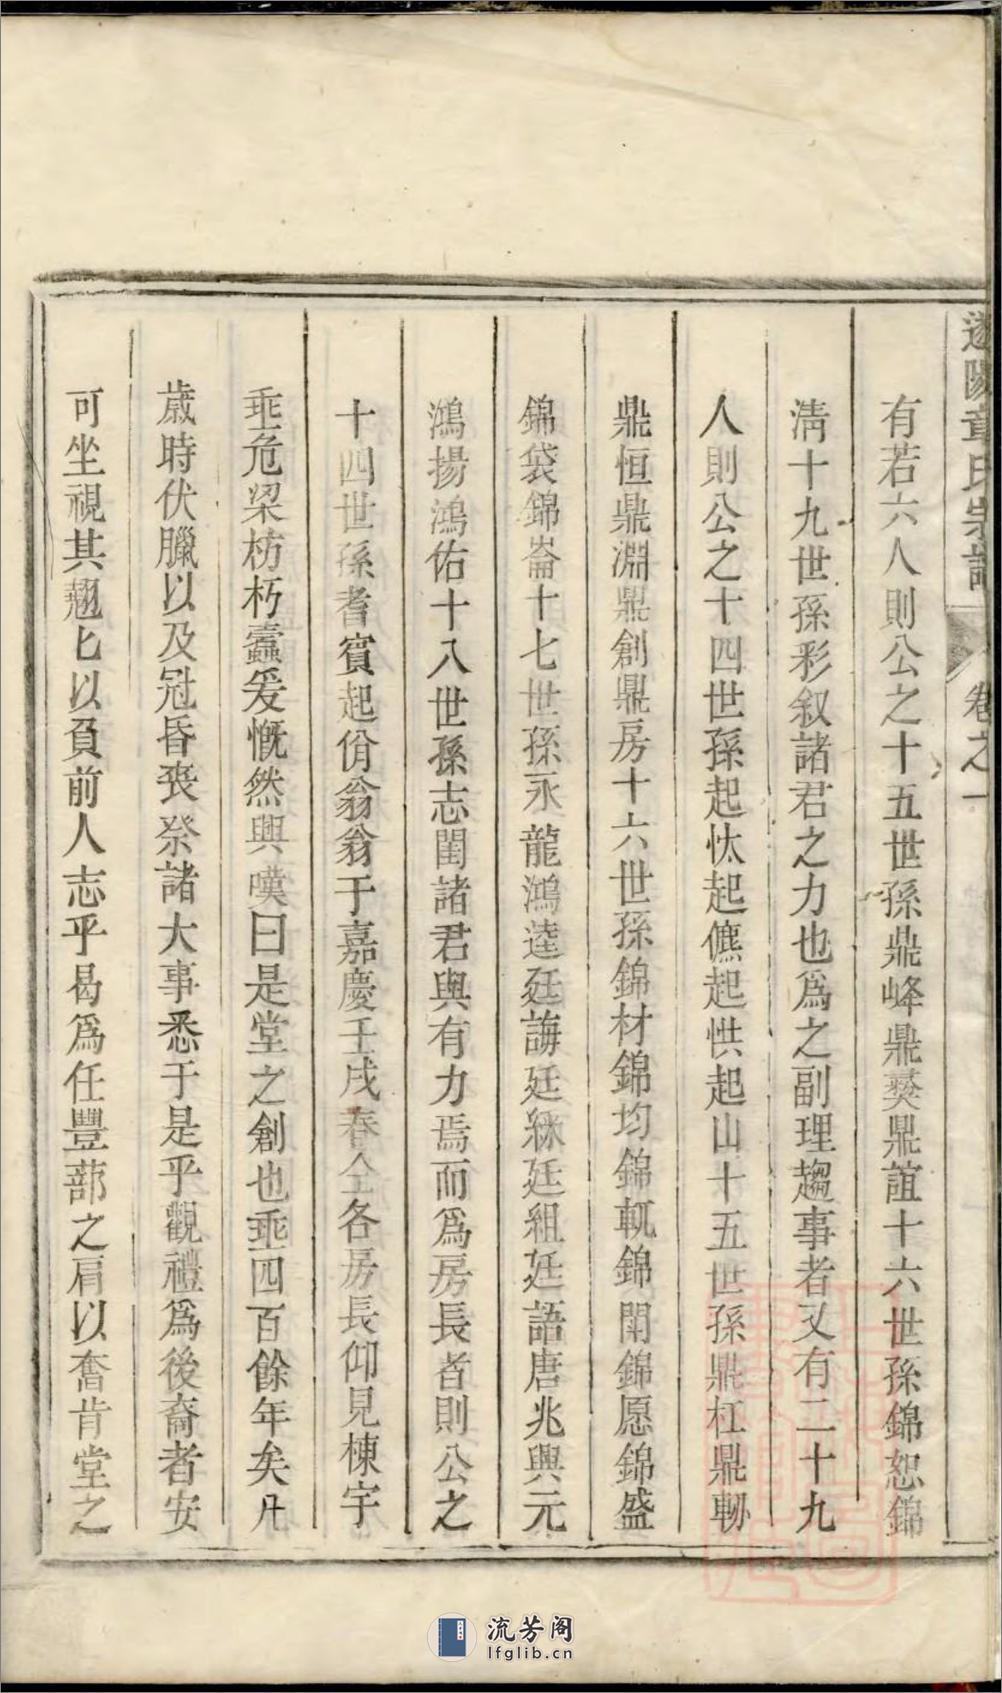 遂陽章氏宗譜 卷之一
有若六人則公之十五世孫鼎峰鼎焚鼎誼十六世孫錦恕錦
淸十九世孫彩叙諸君之力也爲之副理趨事者又有二十九
人則公之十四世孫起忲起僬起恱起山十五世孫鼎杠鼎軔
鼎恒鼎淵鼎創鼎房十六世孫錦材錦均錦軏錦開錦愿錦盛
錦袋錦崙十七世孫永龍鴻逵廷誨廷綝廷組廷語唐兆興元
鴻揚鴻佑十八世孫志閏諸君與有力焉而爲房長者則公之
十四世孫耆賓起佾翁翁于嘉慶壬戌春仝各房長仰見棟宇
埀危梁枋朽蠹爰慨然興嘆曰是堂之創也埀四百餘年矣凡
歲時伏臘以及冠昏喪祭諸大事悉于是乎觀禮爲後裔者安
可坐視其翹匕以負前人志乎曷爲任豐蔀之肩以奮肯堂之
流芳阁
lfglib.cn